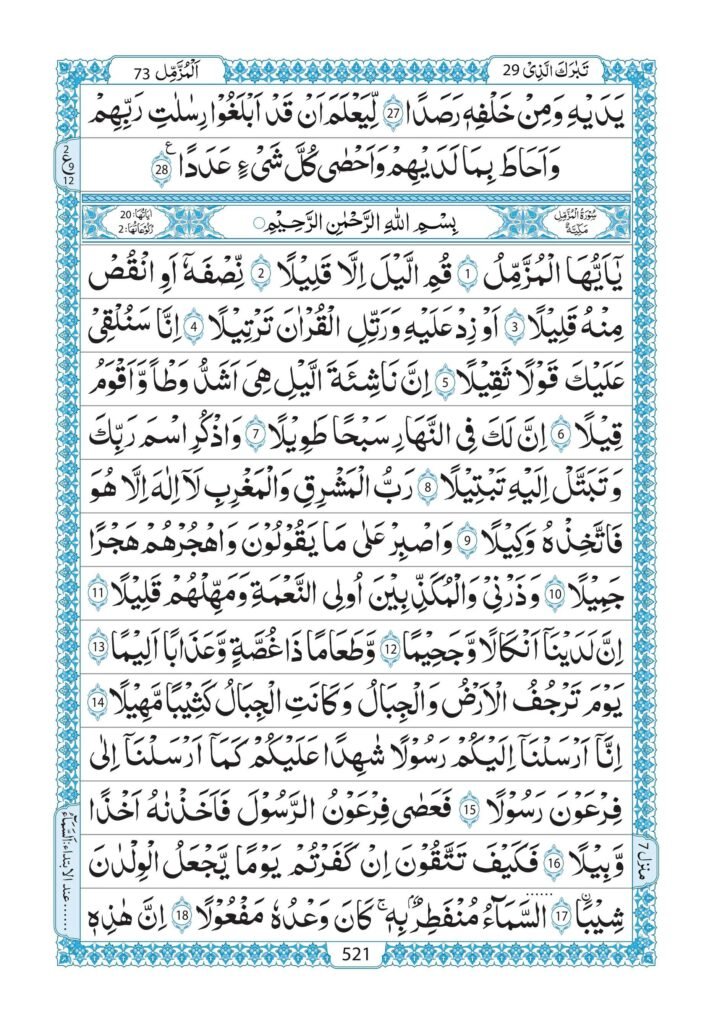 تَبٰرَكَ الَّذِیْ 29
اَلْمُزَّمِّل 73
یَدَیْهِ وَمِنْ خَلْفِهٖ رَصَدًا 27 لِّیَعْلَمَ اَنْ قَدْ اَبْلَغُوْا رِسٰلٰتِ رَبِّهِمْ
وَاَحَاطَ بِمَا لَدَیْهِمْ وَاَحْصٰی كُلَّ شَیْءٍ عَدَدًا 28 ع
2 ع 9 12
سُوْرَةُ الْمُزَّمِّلِ مَكِّیَّةٌ
بِسْمِ اللّٰهِ الرَّحْمٰنِ الرَّحِیْمِ
اٰیَاتُهَا: 20 رُكُوْعَاتُهَا: 2
یٰۤاَیُّهَا الْمُزَّمِّلُ 1 قُمِ الَّیْلَ اِلَّا قَلِیْلًا 2 نِّصْفَهٗۤ اَوِ انْقُصْ
مِنْهُ قَلِیْلًا 3 اَوْ زِدْ عَلَیْهِ وَرَتِّلِ الْقُرْاٰنَ تَرْتِیْلًا 4 اِنَّا سَنُلْقِیْ
عَلَیْكَ قَوْلًا ثَقِیْلًا 5 اِنَّ نَاشِئَةَ الَّیْلِ هِیَ اَشَدُّ وَطْاً وَّاَقْوَمُ
قِیْلًا 6 اِنَّ لَكَ فِی النَّهَارِ سَبْحًا طَوِیْلًا 7 وَاذْكُرِ اسْمَ رَبِّكَ
وَتَبَتَّلْ اِلَیْهِ تَبْتِیْلًا 8 رَبُّ الْمَشْرِقِ وَالْمَغْرِبِ لَاۤ اِلٰهَ اِلَّا هُوَ
فَاتَّخِذْهُ وَكِیْلًا 9 وَاصْبِرْ عَلٰی مَا یَقُوْلُوْنَ وَاهْجُرْهُمْ هَجْرًا
جَمِیْلًا 10 وَذَرْنِیْ وَالْمُكَذِّبِیْنَ اُولِی النَّعْمَةِ وَمَهِّلْهُمْ قَلِیْلًا 11
اِنَّ لَدَیْنَاۤ اَنْكَالًا وَّجَحِیْمًا 12 وَّطَعَامًا ذَا غُصَّةٍ وَّعَذَابًا اَلِیْمًا 13
یَوْمَ تَرْجُفُ الْاَرْضُ وَالْجِبَالُ وَكَانَتِ الْجِبَالُ كَثِیْبًا مَّهِیْلًا 14
اِنَّاۤ اَرْسَلْنَاۤ اِلَیْكُمْ رَسُوْلًا شٰهِدًا عَلَیْكُمْ كَمَاۤ اَرْسَلْنَاۤ اِلٰی
فِرْعَوْنَ رَسُوْلًا 15 فَعَصٰی فِرْعَوْنُ الرَّسُوْلَ فَاَخَذْنٰهُ اَخْذًا
وَّبِیْلًا 16 فَكَیْفَ تَتَّقُوْنَ اِنْ كَفَرْتُمْ یَوْمًا یَّجْعَلُ الْوِلْدَانَ
شِیْبَا 17 السَّمَآءُ مُنْفَطِرٌۢ بِهٖ ؕ كَانَ وَعْدُهٗ مَفْعُوْلًا 18 اِنَّ هٰذِهٖ
منزل 7
......عند الابتداء: اَلسَّمَآءُ
521